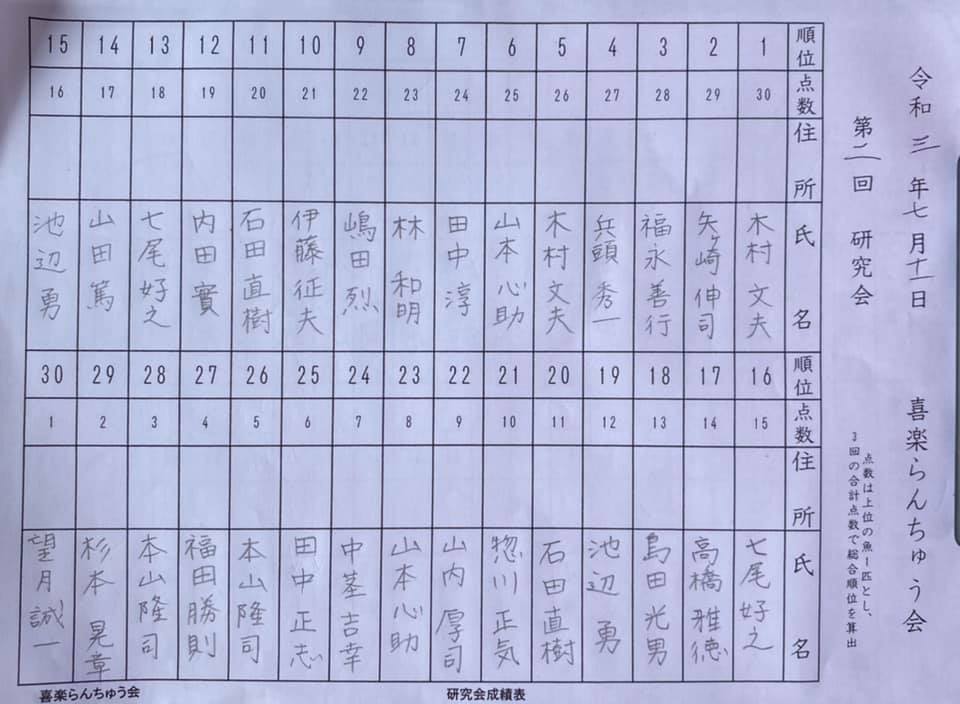 令和三年七月十一日 喜楽らんちゅう会
第二回 研究会
点数は上位の魚1匹とし、
3回の合計点数で総合順位を算出
順位 1 2 3 4 5 6 7 8 9 10 11 12 13 14 15
点数 30 29 28 27 26 25 24 23 22 21 20 19 18 17 16
住所
氏名
木村文夫
矢ヶ崎伸司
福永善行
兵頭秀一
木村文夫
山本心助
田中淳
林和明
嶋田烈
伊藤征夫
石田直樹
内田實
七尾好之
山田篤
池辺勇
順位 16 17 18 19 20 21 22 23 24 25 26 27 28 29 30
点数 15 14 13 12 11 10 9 8 7 6 5 4 3 2 1
住所
氏名
七尾好之
高橋雅徳
島田光男
池辺勇
石田直樹
惣川正気
山内厚司
山本心助
中茎吉幸
田中正志
本山隆司
福田勝則
本山隆司
杉本晃章
望月誠一
喜楽らんちゅう会 研究会成績表